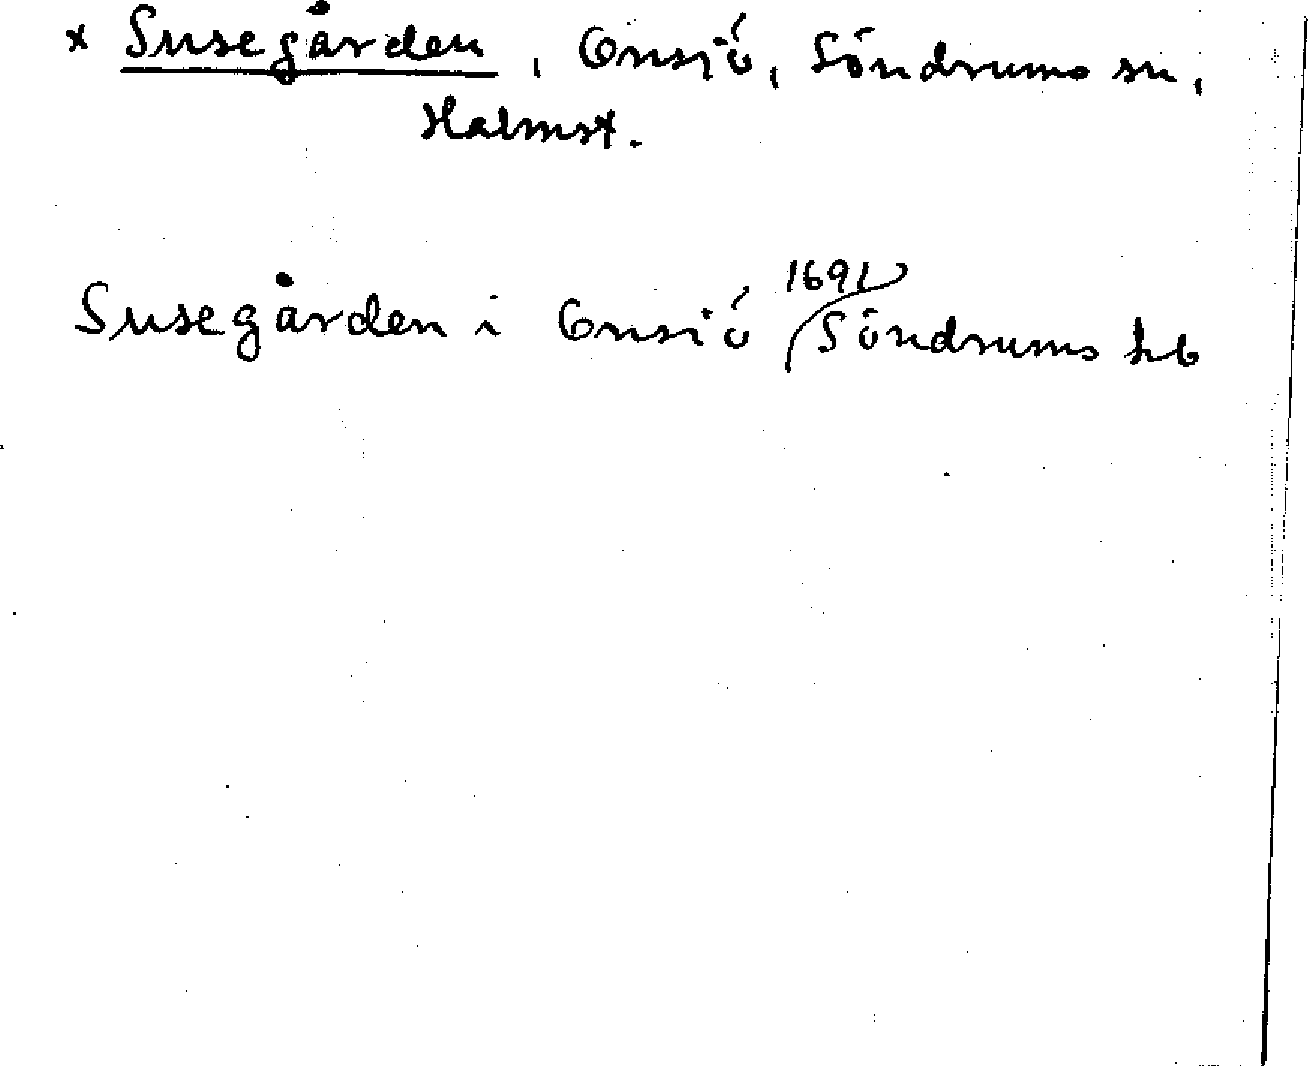 x Susegården, Onsjö, Söndrums sn,
Halmst.
Susegården i Onsjö 1691 Söndrums hb